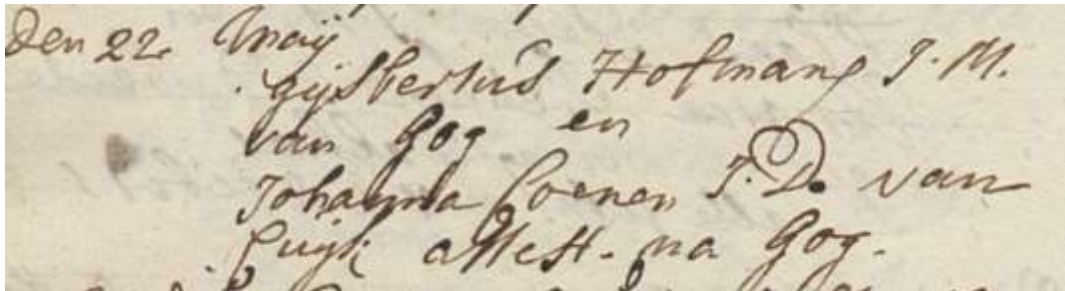 Den 22 Maÿ
gijsbertus Hofmans J. M.
van Gog en
Johanna Coenen J. D. van
Cuijk attest. na Gog.